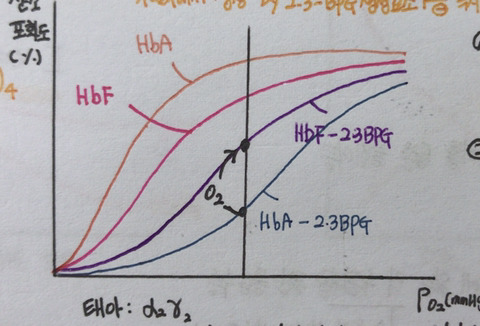 포화도
(%)
4
HbA
HbF
HbF-2.3BPG
O₂
HbA-2.3BPG
태아: α₂γ₂
PO₂(mmHg